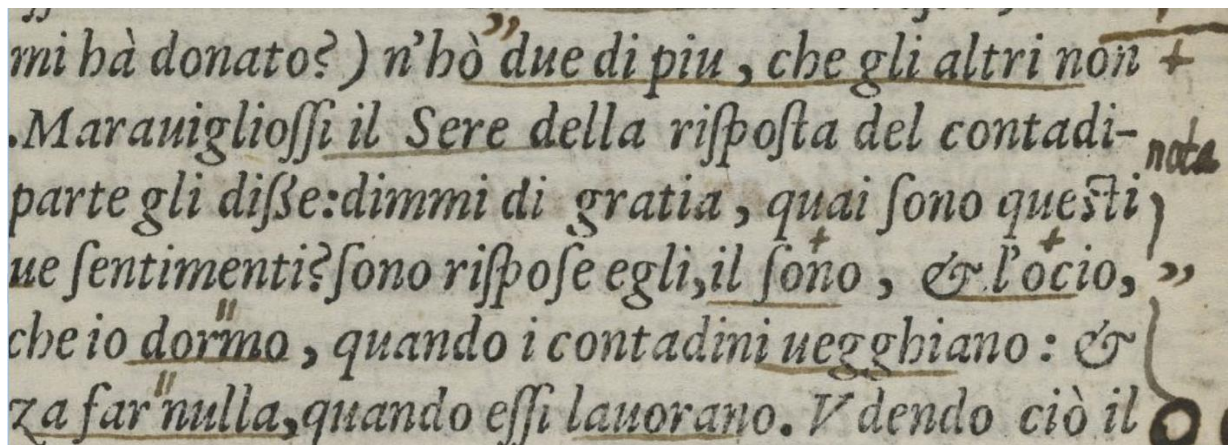 mi hà donato?) n'hò due di piu, che gli altri non +
.Marauiglioſſi il Sere della riſpoſta del contadi-
nota
parte gli diſſe:dimmi di gratia, quai ſono queſti
ue ſentimenti?ſono riſpoſe egli,il ſono, & l'ocio, ”
che io dormo, quando i contadini uegghiano: &
za far nulla,quando eſſi lauorano. Vdendo ciò il